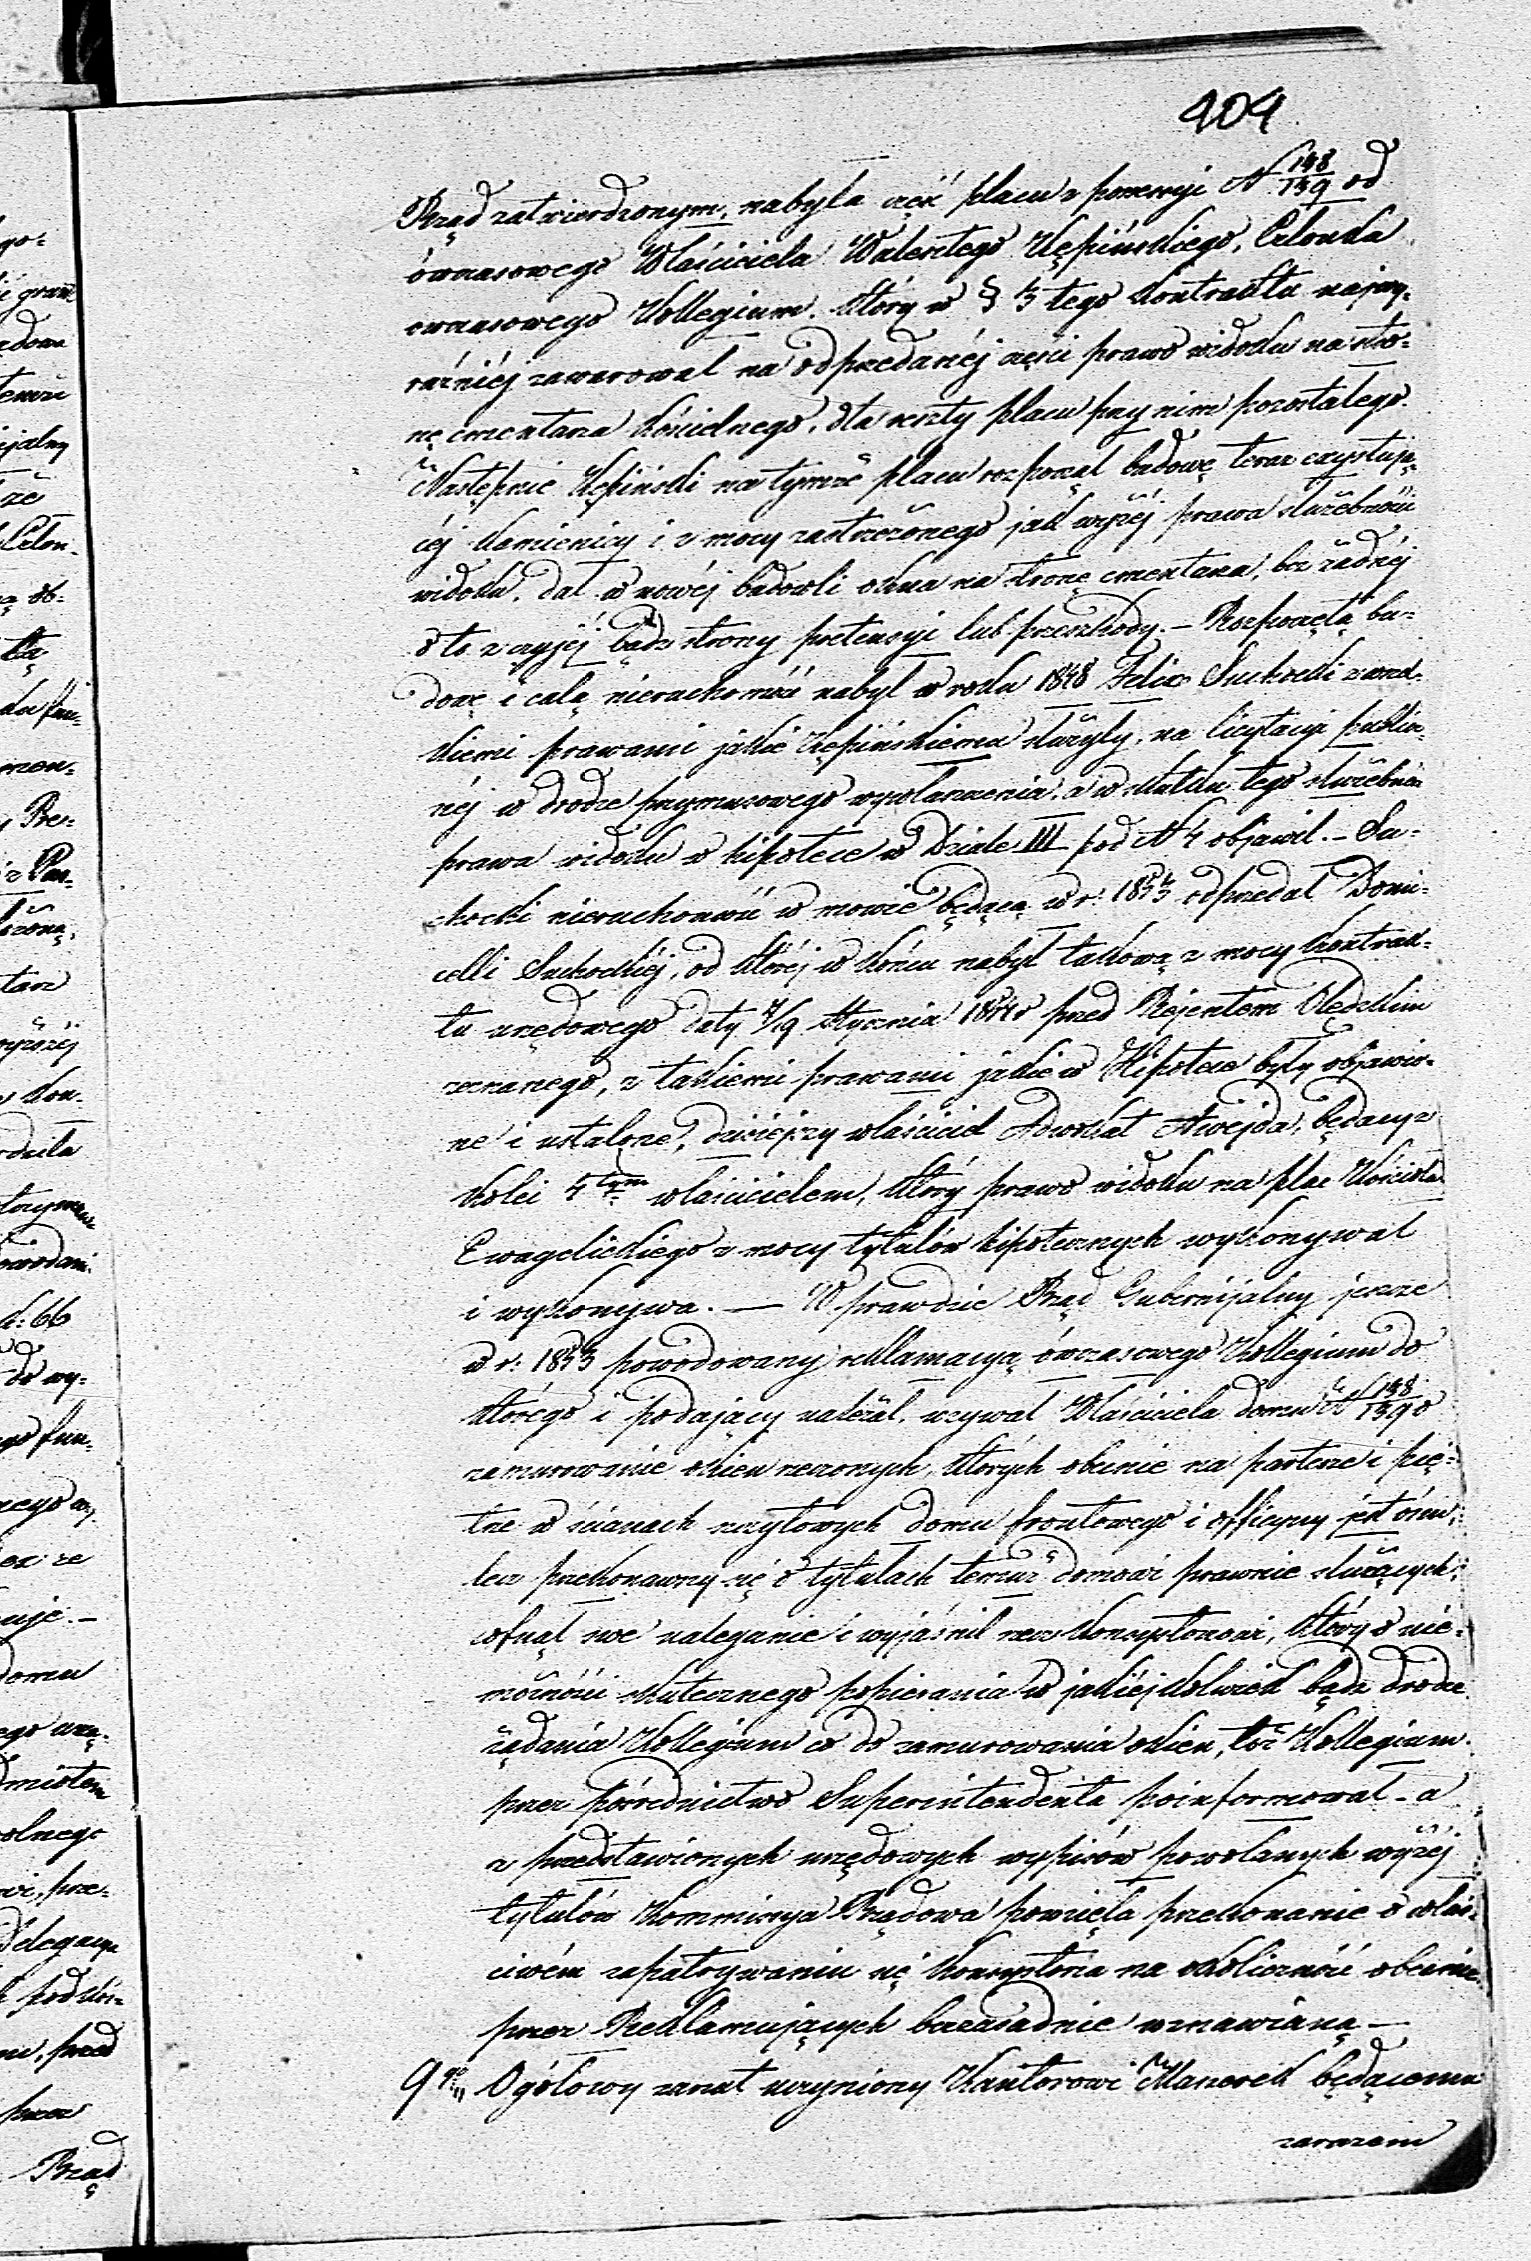 404
Rząd zatwierdzonym, nabyła część placu z possessyi N 138/139 od
ówczasowego Właściciela Walentego Kępińskiego, Członka
owczasowego Kollegium, który w § 3 tego Kontraktu najwy-
raźniéj zawarował na odprzedanéj części prawo widoku na stro-
nę cmentarza Kościelnego, dla reszty placu przy nim pozostałego.
Następnie Kępiński na tymże placu rozpoczął budowę teraz exystują-
céj Kamienicy i z mocy zastrzeżonego jak wyżéj prawa służebności
widoku, dał w nowéj budowli okna na stronę cmentarza, bez żadnéj
o to z czyjéj bądź strony pretensyi lub przeszkody. — Rozpoczętą bu-
dowę i całą nieruchomość nabył w roku 1848 Felix Suchocki z wszel-
kiemi prawami jakie Kępińskiemu służyły, na licytacyi publicz-
néj w drodze przymusowego wywłaszczenia, a w skutku tego służebność
prawa widoku w hipotece w Dziale III pod N 4 objawił. — Su-
chocki nieruchomość w mowie będącą w r: 1853 odprzedał Domi-
celli Suchockiéj, od któréj w końcu nabył takową z mocy Kontrak-
tu urzędowego daty 7/9 Stycznia 1854 r przed Rejentem
zeznanego, z takiemi prawami jakie w Hipotece były objawio-
ne i ustalone, dzisiéjszy właściciel Adwokat będący z
kolei 4tym właścicielem, który prawo widoku na plac Kościoła
Ewagelickiego z mocy tytułów hipotecznych wykonywał
i wykonywa. — W prawdzie Rząd Gubernijalny jeszcze
w r: 1853 powodowany reklamacyą ówczasowego Kollegium do
którego i podający należał, wzywał Właściciela domu N 138/139 o
zamurowanie okien rzeczonych, których obecnie na parterze i pię-
trze w ścianach szczytowych domu frontowego i officyny jest ośm,
lecz przekonawszy się o tytułach temuż domowi prawnie służących,
cofnął swe naleganie i wyjaśnił rzecz Konsystorzowi, który o nie-
możności skutecznego popierania w jakiéjkolwiek bądź drodze
żądania Kollegium co do zamurowania okien, toż Kollegium
przez pośrednictwo Superintendenta poinformował — a
z przedstawionych urzędowych wypisów powołanych wyżéj
tytułów Kommissya Rządowa powzięła przekonanie o właś-
ciwém zapatrywaniu się Konsystorza na okoliczność obecnie
przez Reklamujących bezzasadnie wznawianą —
9re Ogółowy zarzut uczyniony Kantorowi Manzerek będącemu
zarazem
go-
adowa
jalny
że
Człon-
ob-
tę
mon-
Pre-
tarz
wyższéj
Kon-
k: 66
do wy-
go fun-
ze
uje. —
domu
dmiotem
olnego
Delegacya
przed
przez
Rząd